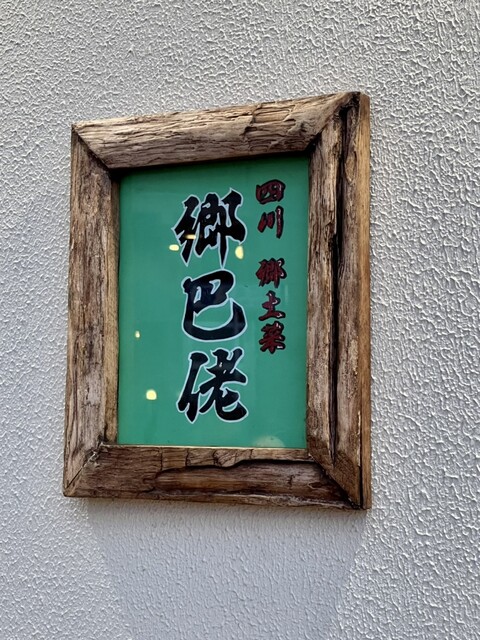 四川 郷土菜
郷巴佬